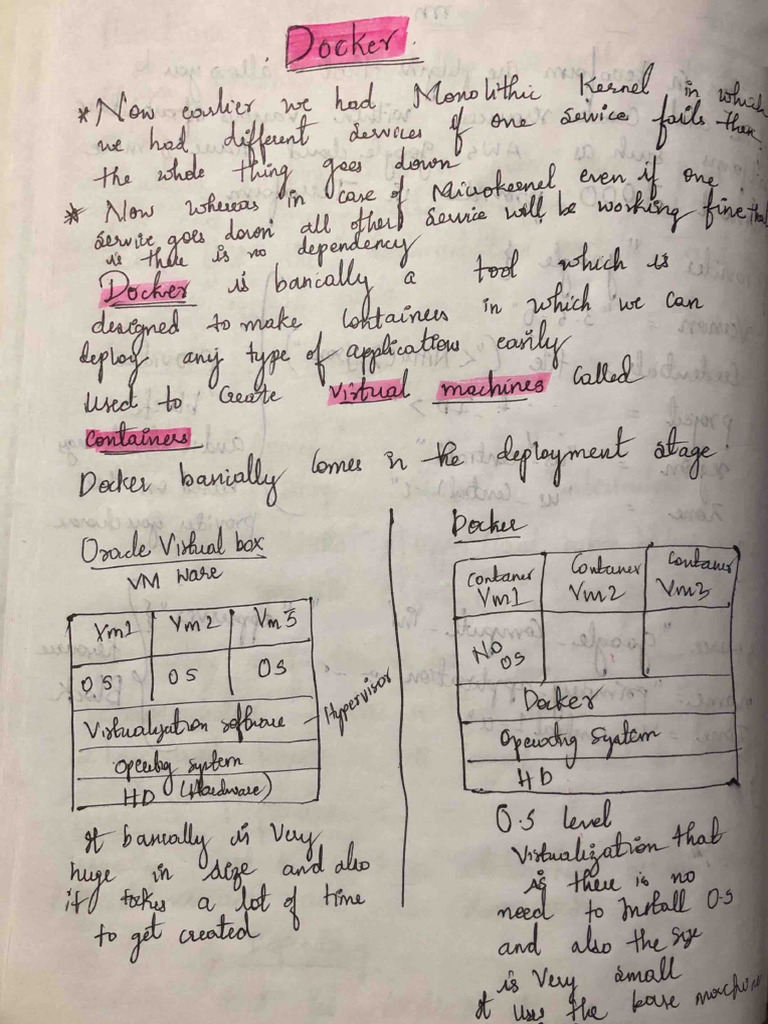 : Docker .
* Now earlier we had Monolithic Kernel in which
we had different services if one service fails then
the whole thing goes down
* Now whereas in case of Microkernel even if one
service goes down all other service will be working fine that
is there is no dependency
Docker is banically a tool which is
designed to make containers in which we can
deploy any type of application easily
Used to create virtual machines called
containers
Docker banially comes in the deployment stage
Oracle Virtual box
VM Ware
Vm1 Vm2 Vm3
OS OS OS
Virtualization software - Hypervisor
Operating system
HD (Hardware)
It banically is very
huge in size and also
it takes a lot of time
to get created
Docker
Container Container Container
Vm1 Vm2 Vm3
No
OS
Docker
Operating System
HD
O.S level
Virtualization that
is there is no
need to Install O.S
and also the size
is Very small
It uses the base machine